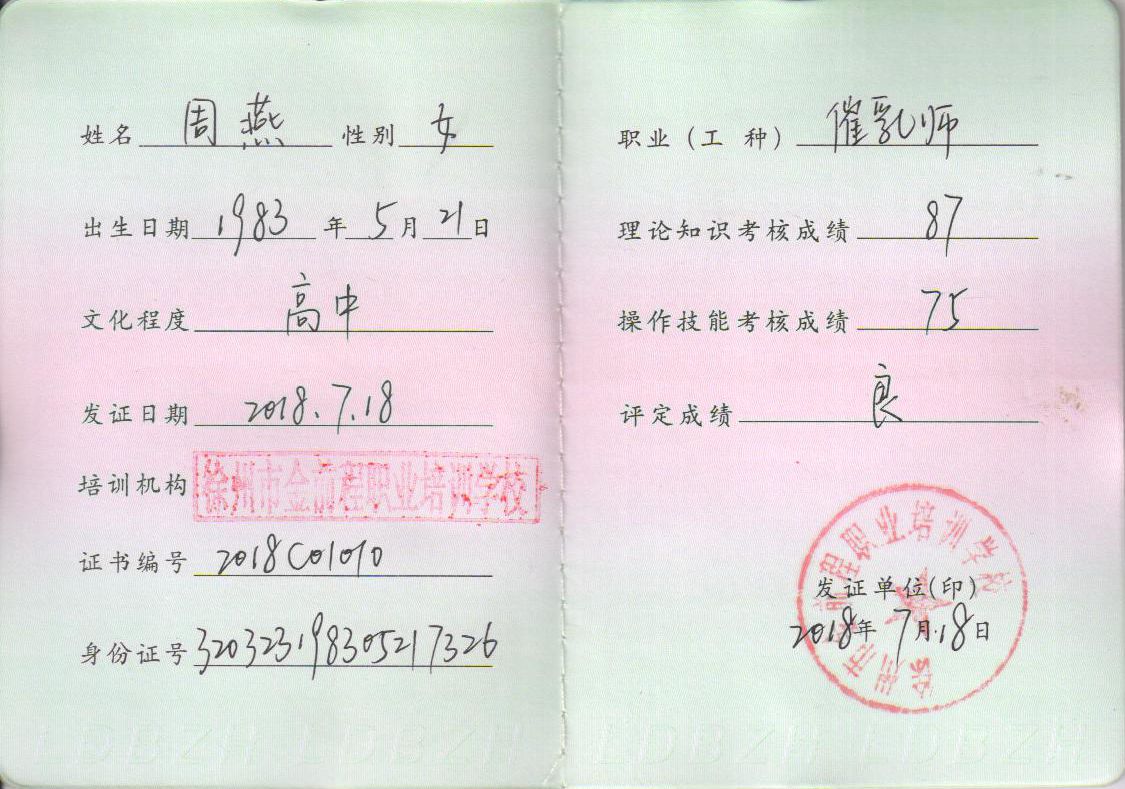 姓名 周燕 性别 女
出生日期 1983 年 5 月 21 日
文化程度 高中
发证日期 2018.7.18
培训机构 徐州市金前程职业培训学校
证书编号 2018C01010
身份证号 320323198305217326
LDBZH LDBZH
职业（工 种） 催乳师
理论知识考核成绩 87
操作技能考核成绩 75
评定成绩 良
徐州市金前程职业培训学校
发证单位(印)
2018年 7月.18日
LDBZH LDBZH